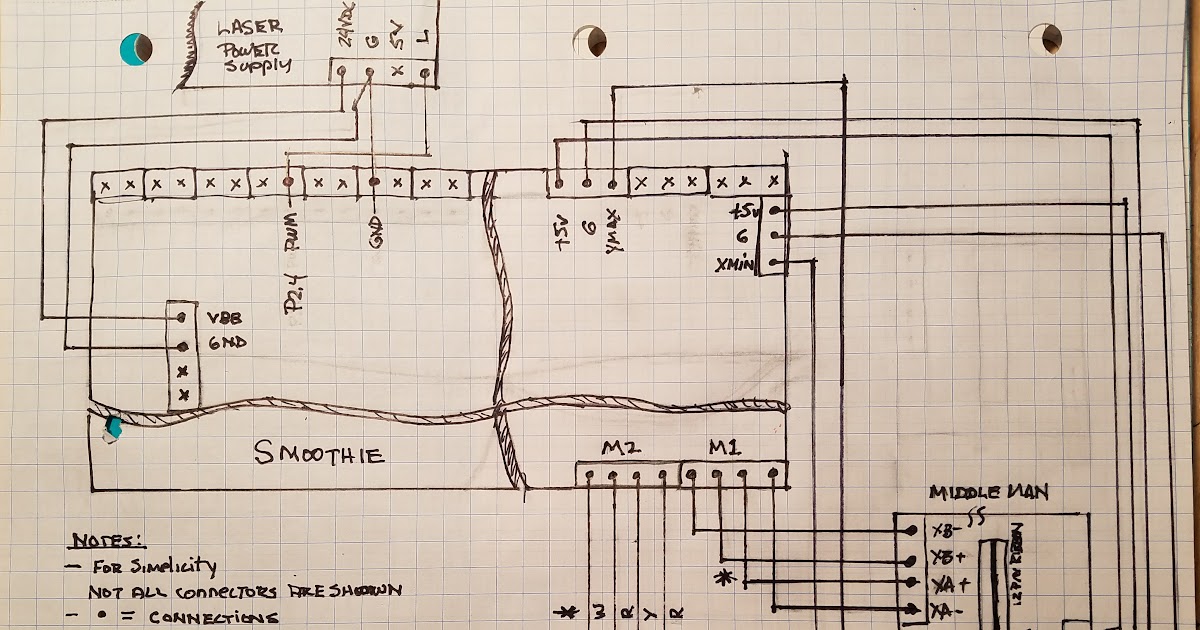 LASER
POWER
SUPPLY
24VDC
G
5V
L
X
X X X X X X X X X X X X
X X X X X X
P2.4 PWM
GND
+5V
G
YMAX
+5V
G
XMIN
VBB
GND
X
X
SMOOTHIE
M2 M1
MIDDLE MAN
XB-
XB+
XA+
XA-
*
* W R Y R
NOTES:
- FOR SIMPLICITY
NOT ALL CONNECTORS ARE SHOWN
- • = CONNECTIONS